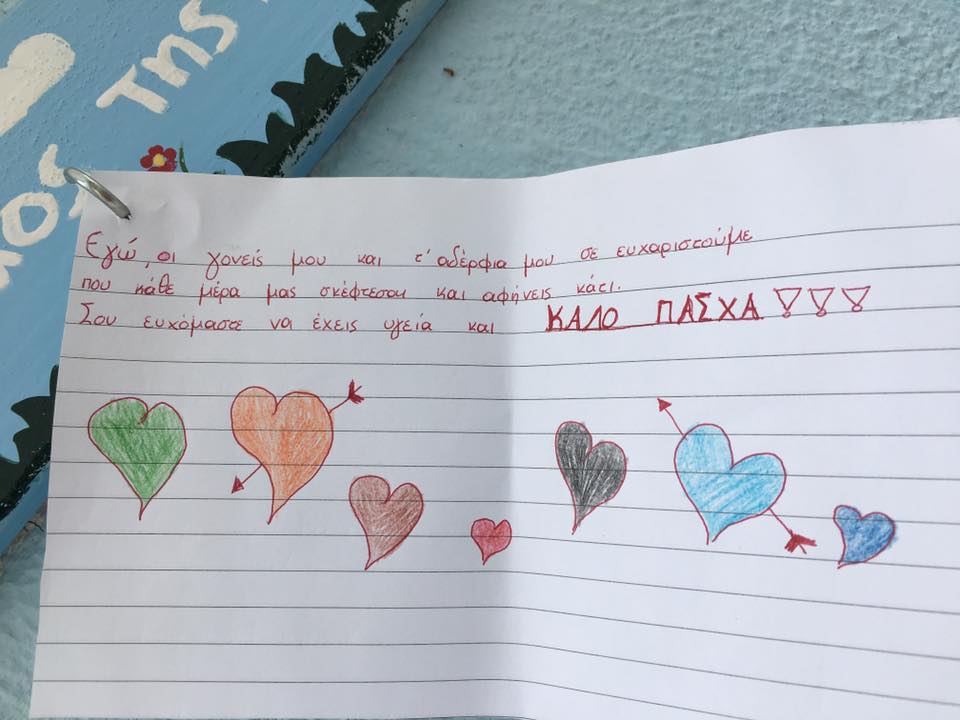 ΤΗΣ
ΟΣ
Εγώ, οι γονείς μου και τ' αδέρφια μου σε ευχαριστούμε
που κάθε μέρα μας σκέφτεσαι και αφήνεις κάτι.
Σου ευχόμαστε να έχεις υγεία και ΚΑΛΟ ΠΑΣΧΑ!!!